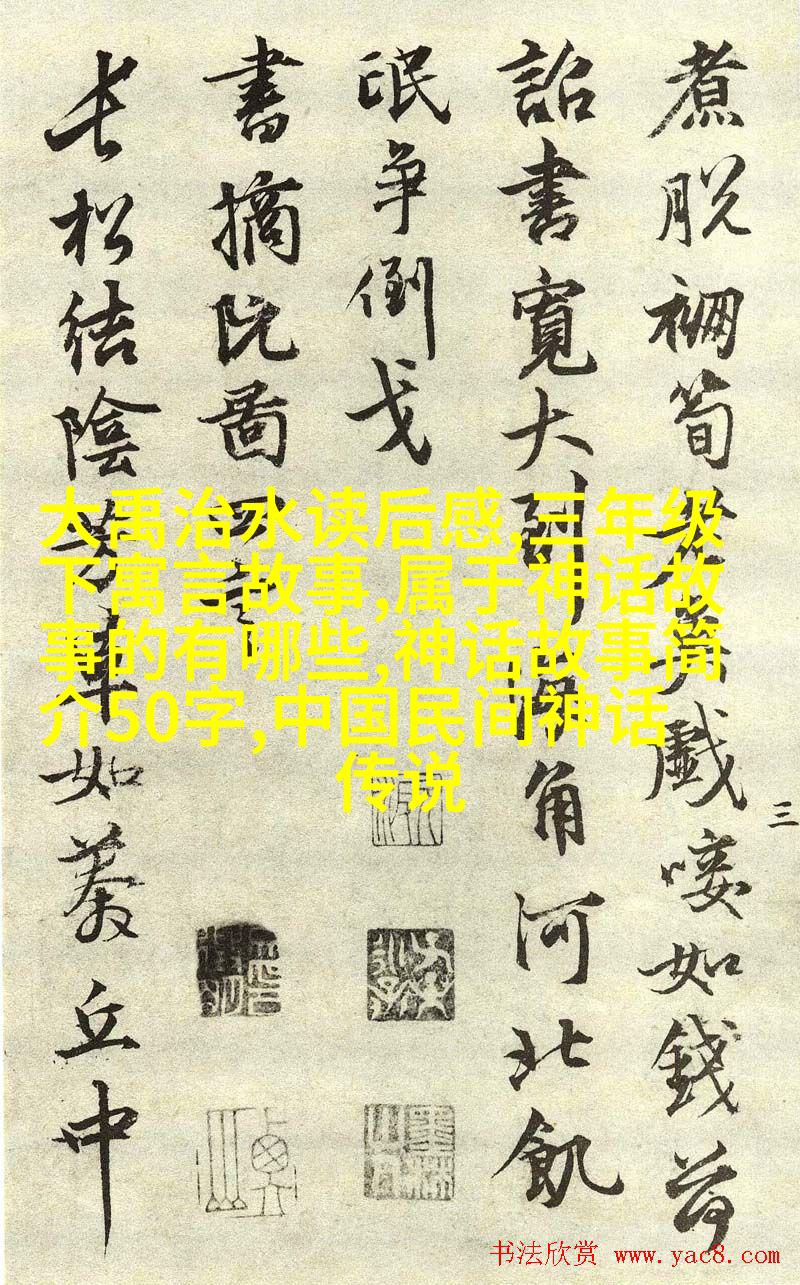 煮脫筍戲唼如錢荷
詔書寬大到角河北飢
氓爭倒戈
書摘阮圖
長松結陰如丘中
三
大禹治水读后感,三年级
下寓言故事,属于神话故
事的有哪些,神话故事简
介50字,中国民间神话
传说
书法欣赏 www.yac8.com